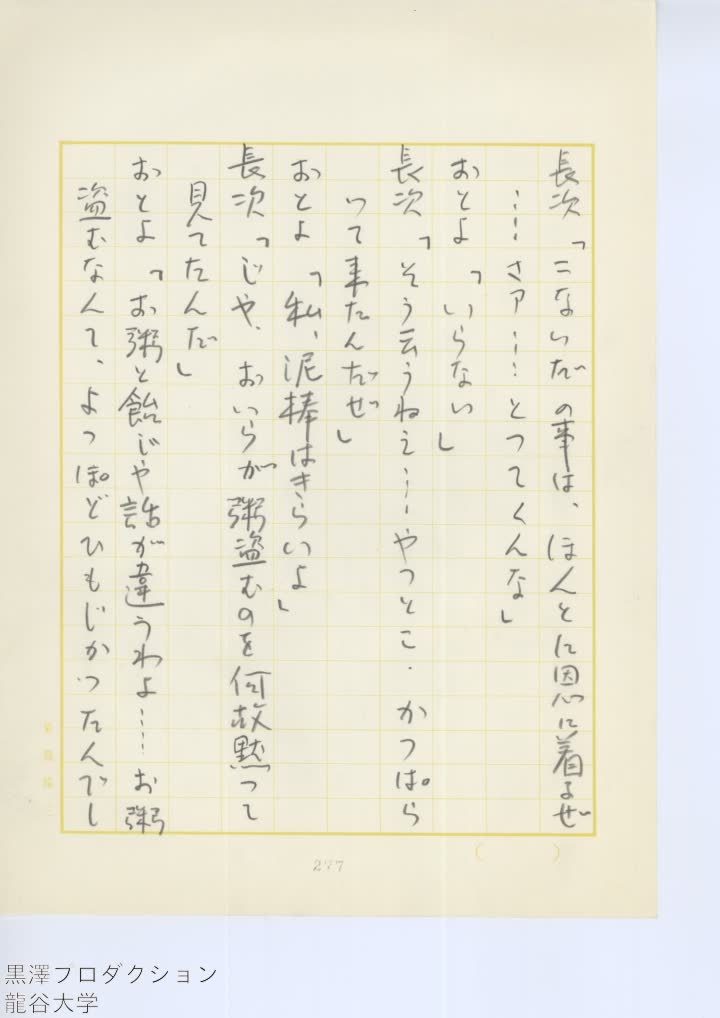 長次「こないだの事は、ほんとに恩に着るぜ
……さア……とつてくんな」
おとよ「いらない」
長次「そう云うねえ……やつとこ、かつぱら
つて来たんだぜ」
おとよ「私、泥棒はきらいよ」
長次「じや、おいらが粥盗むのを何故黙つて
見てたんだ」
おとよ「お粥と飴じや話が違うわよ……お粥
盗むなんて、よつぽどひもじかつたんでし
277
黒澤プロダクション
龍谷大学